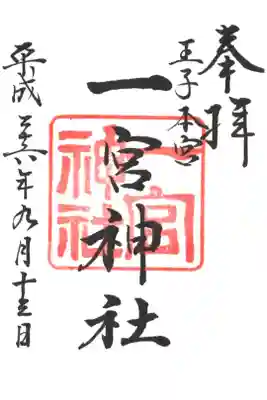 奉拝
王子本宮
一宮神社
平成二六年九月十日
一宮神社